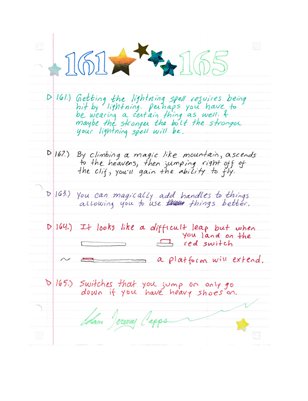 161 165
161.) Getting the lightning spell requires being
hit by lightning. Perhaps you have to
be wearing a certain thing as well. &
maybe the stronger the bolt the stronger
your lightning spell will be.
162.) By climbing a magic like mountain, ascends
to the heavens, then jumping right off of
the clif, you'll gain the ability to fly.
163.) You can magically add handles to things
allowing you to use things better.
164.) It looks like a difficult leap but when
you land on the
red switch
a platform will extend.
165.) Switches that you jump on only go
down if you have heavy shoes on.